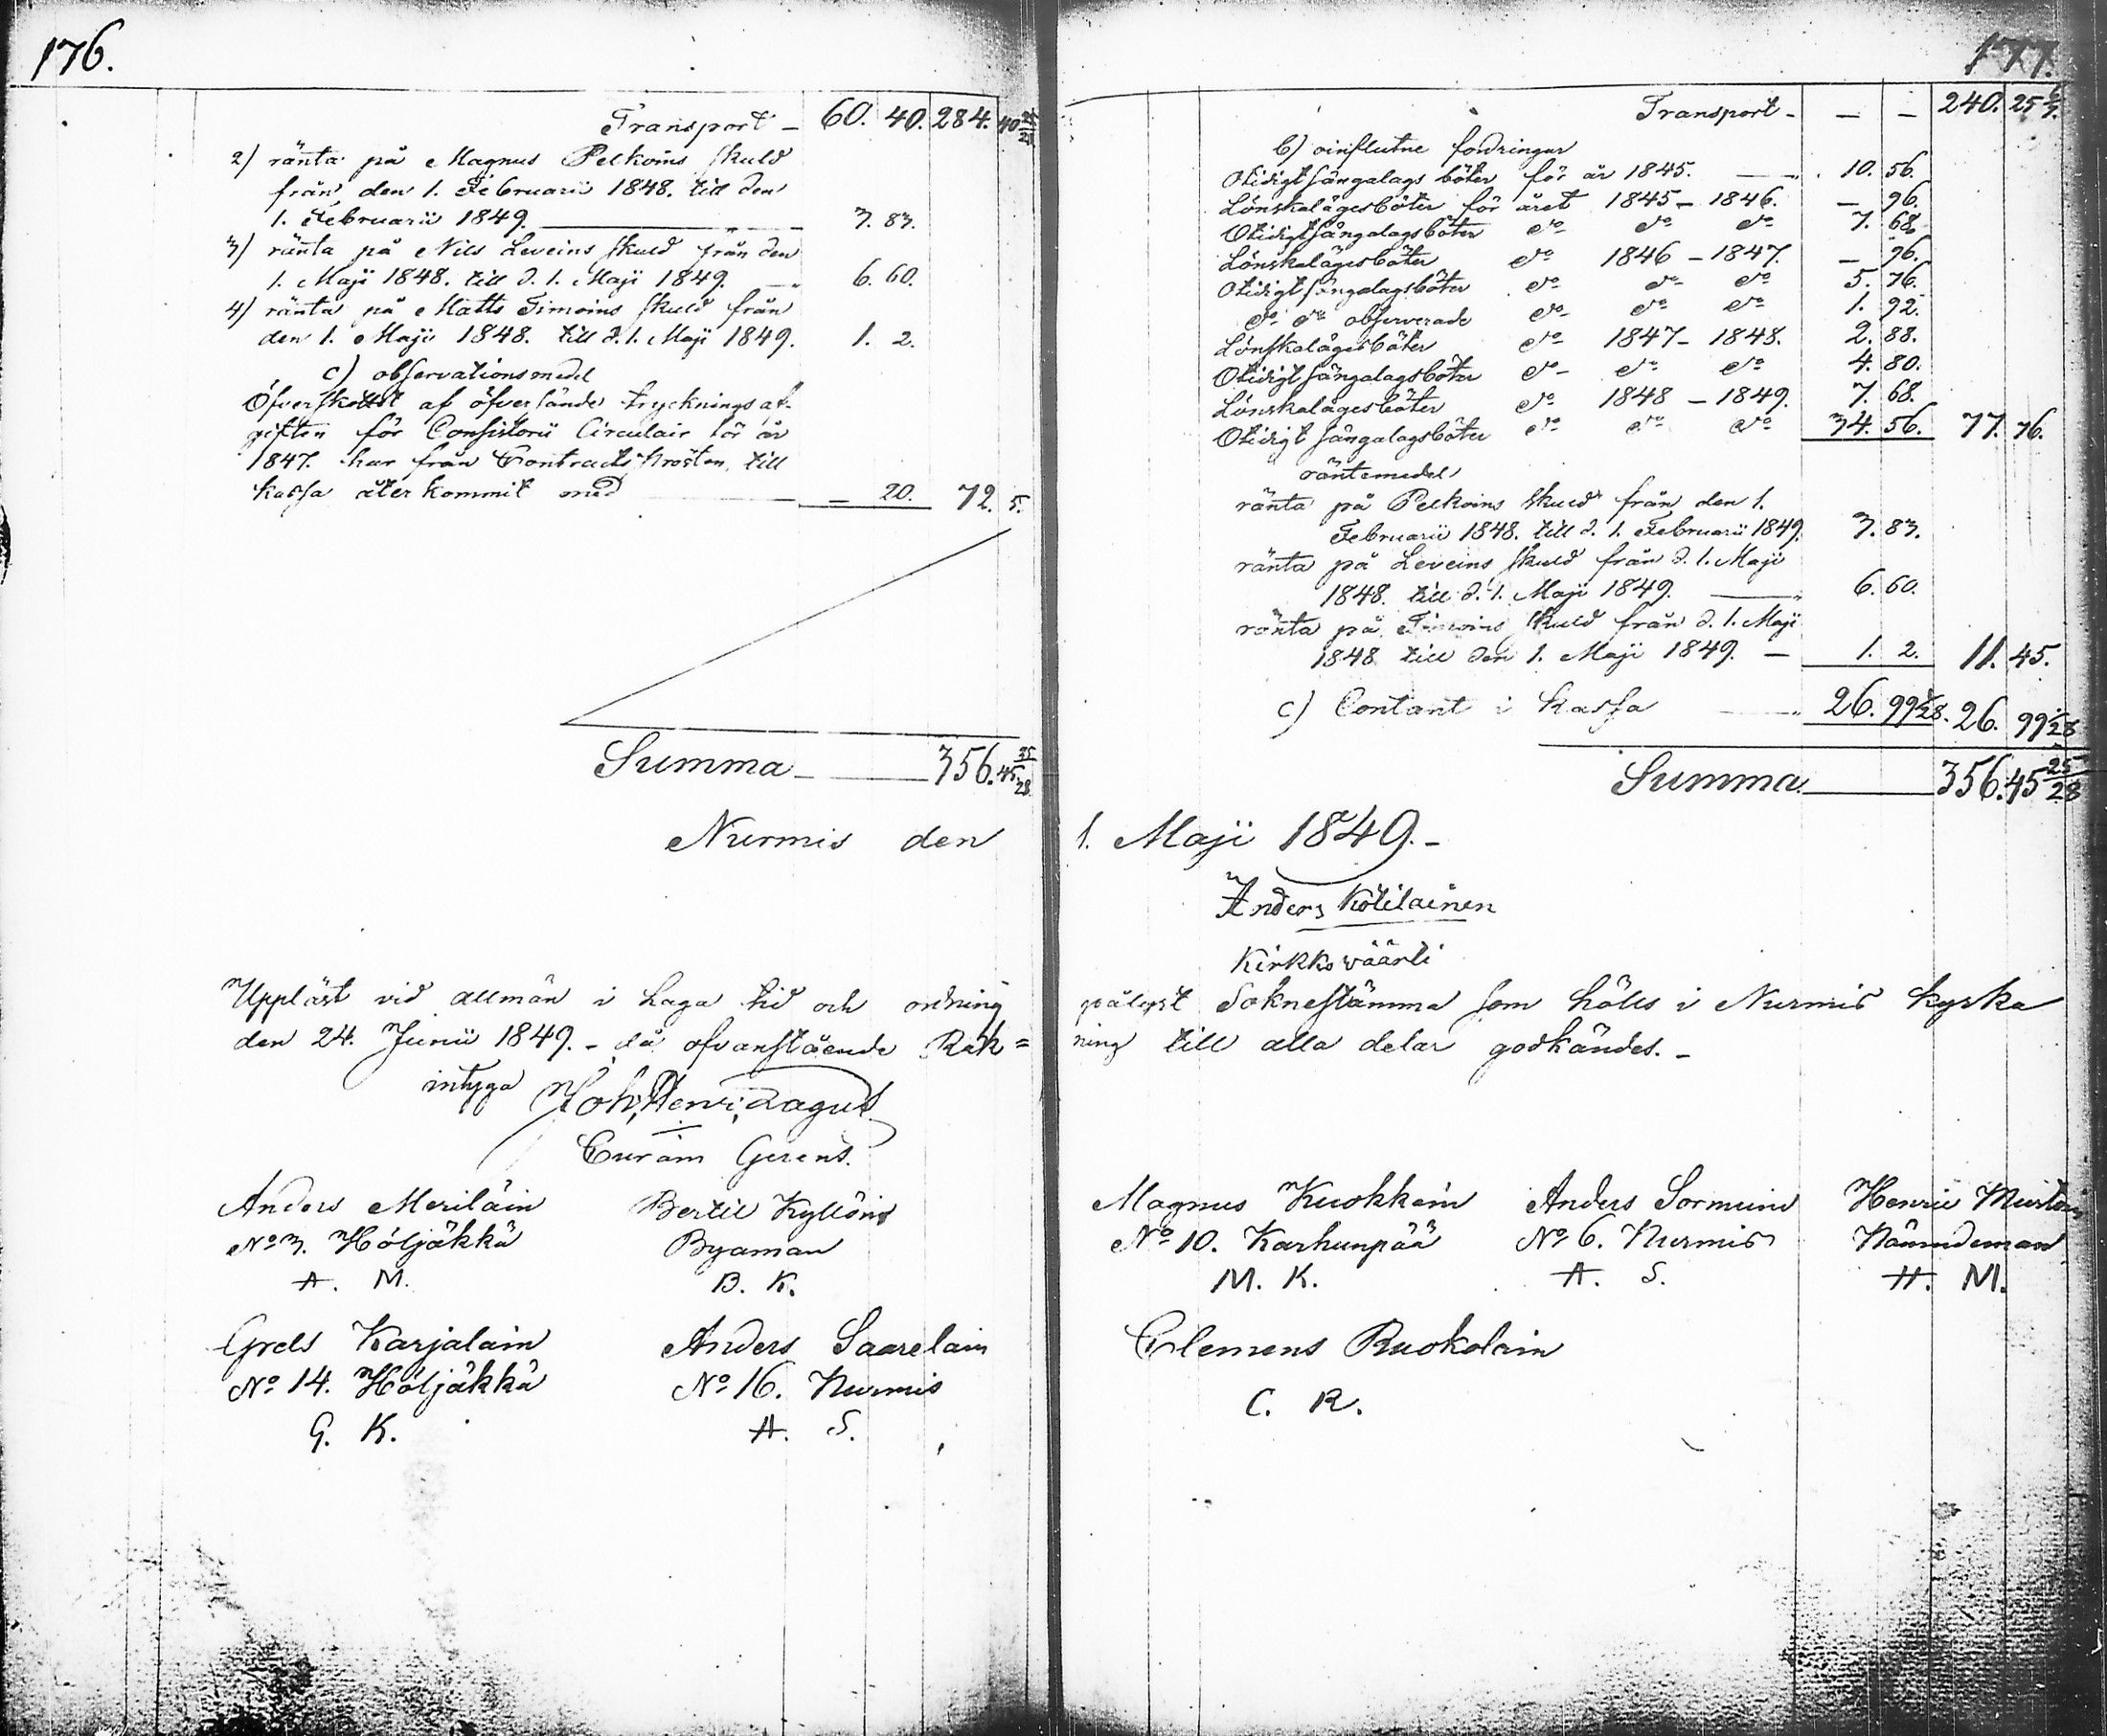 176.
Transport - 60. 40. 284. 40 25/28
2) ränta på Magnus Pelkoins skuld
från den 1. Februarii 1848. till den
1. Februarii 1849. 3. 83.
3) ränta på Nils Leveins skuld från den
1. Maji 1848. till d. 1. Maji 1849. 6. 60.
4) ränta på Matts Timoins skuld från
den 1. Maji 1848. till d. 1. Maji 1849. 1. 2.
c) observationsmedel
Öfverskottet af öfversände trycknings af-
giften för Consistorii Circulair för år
1847. har från Contracts Prosten till
kassa återkommit med - 20. 72. 5.
Summa 356. 45 25/28
Nurmis den
Uppläst vid allmän i Laga tid och ordning
den 24. Junii 1849. - då ofvanstående Räk=
intyga Joh. Henr. Lagus
Curam Gerens.
Anders Meriläin Bertil Kyllöin
No 3. Höljäkkä Byaman
A. M. B. K.
Grels Karjalain Anders Saarelain
No 14. Höljäkkä No 16. Nurmis
G. K. A. S.
177.
Transport - - - 240. 25 6/7.
b) oinflutne fordringar
Otidigt sängalags böter för år 1845. 10. 56.
Lönskalägesböter för året 1845 - 1846. - 96.
Otidigt sängalagsböter do do do 7. 68.
Lönskalägesböter do 1846 - 1847. - 96.
Otidigt sängalagsböter do do do 5. 76.
do do observerade do do do 1. 92.
Lönskalägesböter do 1847 - 1848. 2. 88.
Otidigt sängalagsböter do do do 4. 80.
Lönskalägesböter do 1848 - 1849. 7. 68.
Otidigt sängalagsböter do do do 34. 56. 77. 76.
räntemedel
ränta på Pelkoins skuld från den 1.
Februarii 1848. till d. 1. Februarii 1849. 3. 83.
ränta på Leveins skuld från d. 1. Maji
1848. till d. 1. Maji 1849. 6. 60.
ränta på Timoins skuld från d. 1. Maji
1848 till den 1. Maji 1849. - 1. 2. 11. 45.
c) Contant i kassa 26. 99 1/28. 26. 99 1/28
Summa 356. 45 25/28
1. Maji 1849. -
Anders Kotilainen
Kirkko väärti
pålyst Soknestämma som hölls i Nurmis kyrka
ning till alla delar godkändes. -
Magnus Kuokkain Anders Sormuin Henric Murtoin
No 10. Karhunpää No 6. Nurmis Nämndeman
M. K. A. S. H. M.
Clemens Ruokolain
C. R.